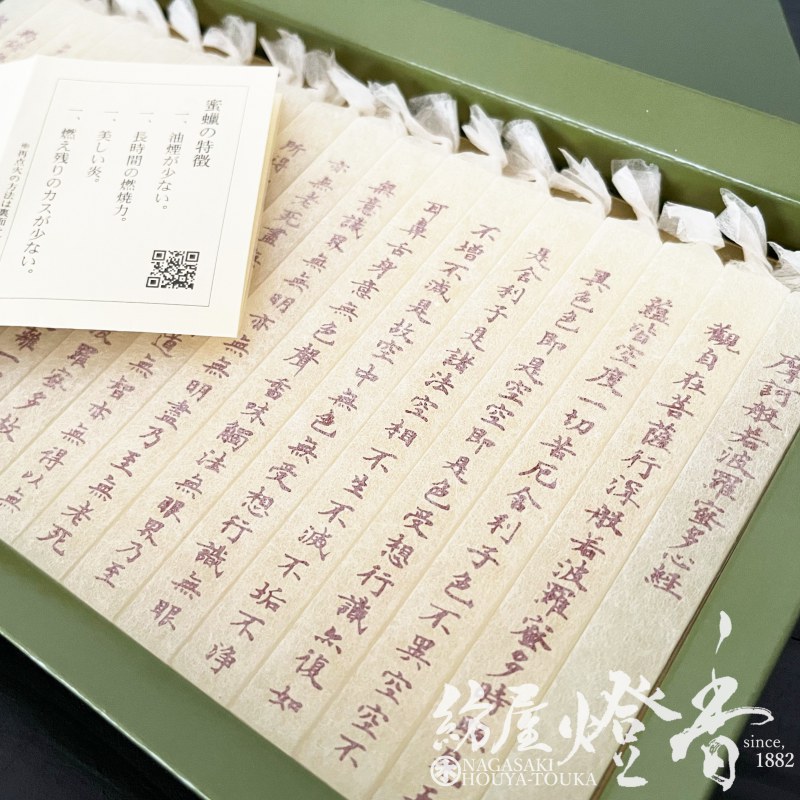 摩訶般若波羅蜜多心経
觀自在菩薩行深般若波羅蜜多時
蘊皆空度一切苦厄舍利子色不異空空不
異色色即是空空即是色受想行識亦復如
是舍利子是諸法空相不生不滅不垢不浄
不増不滅是故空中無色無受想行識無眼
耳鼻舌身意無色聲香味觸法無眼界乃至
無意識界無無明亦無無明盡乃至無老死
亦無老死盡無 道無智亦無得以無
所得 羅蜜多故
蜜蝋の特徴
一、油煙が少ない。
一、長時間の燃焼力。
一、美しい炎。
一、燃え残りのカスが少ない。
※再点火の方法は裏面
紡屋燈香
NAGASAKI
HOUYA-TOUKA
since,
1882